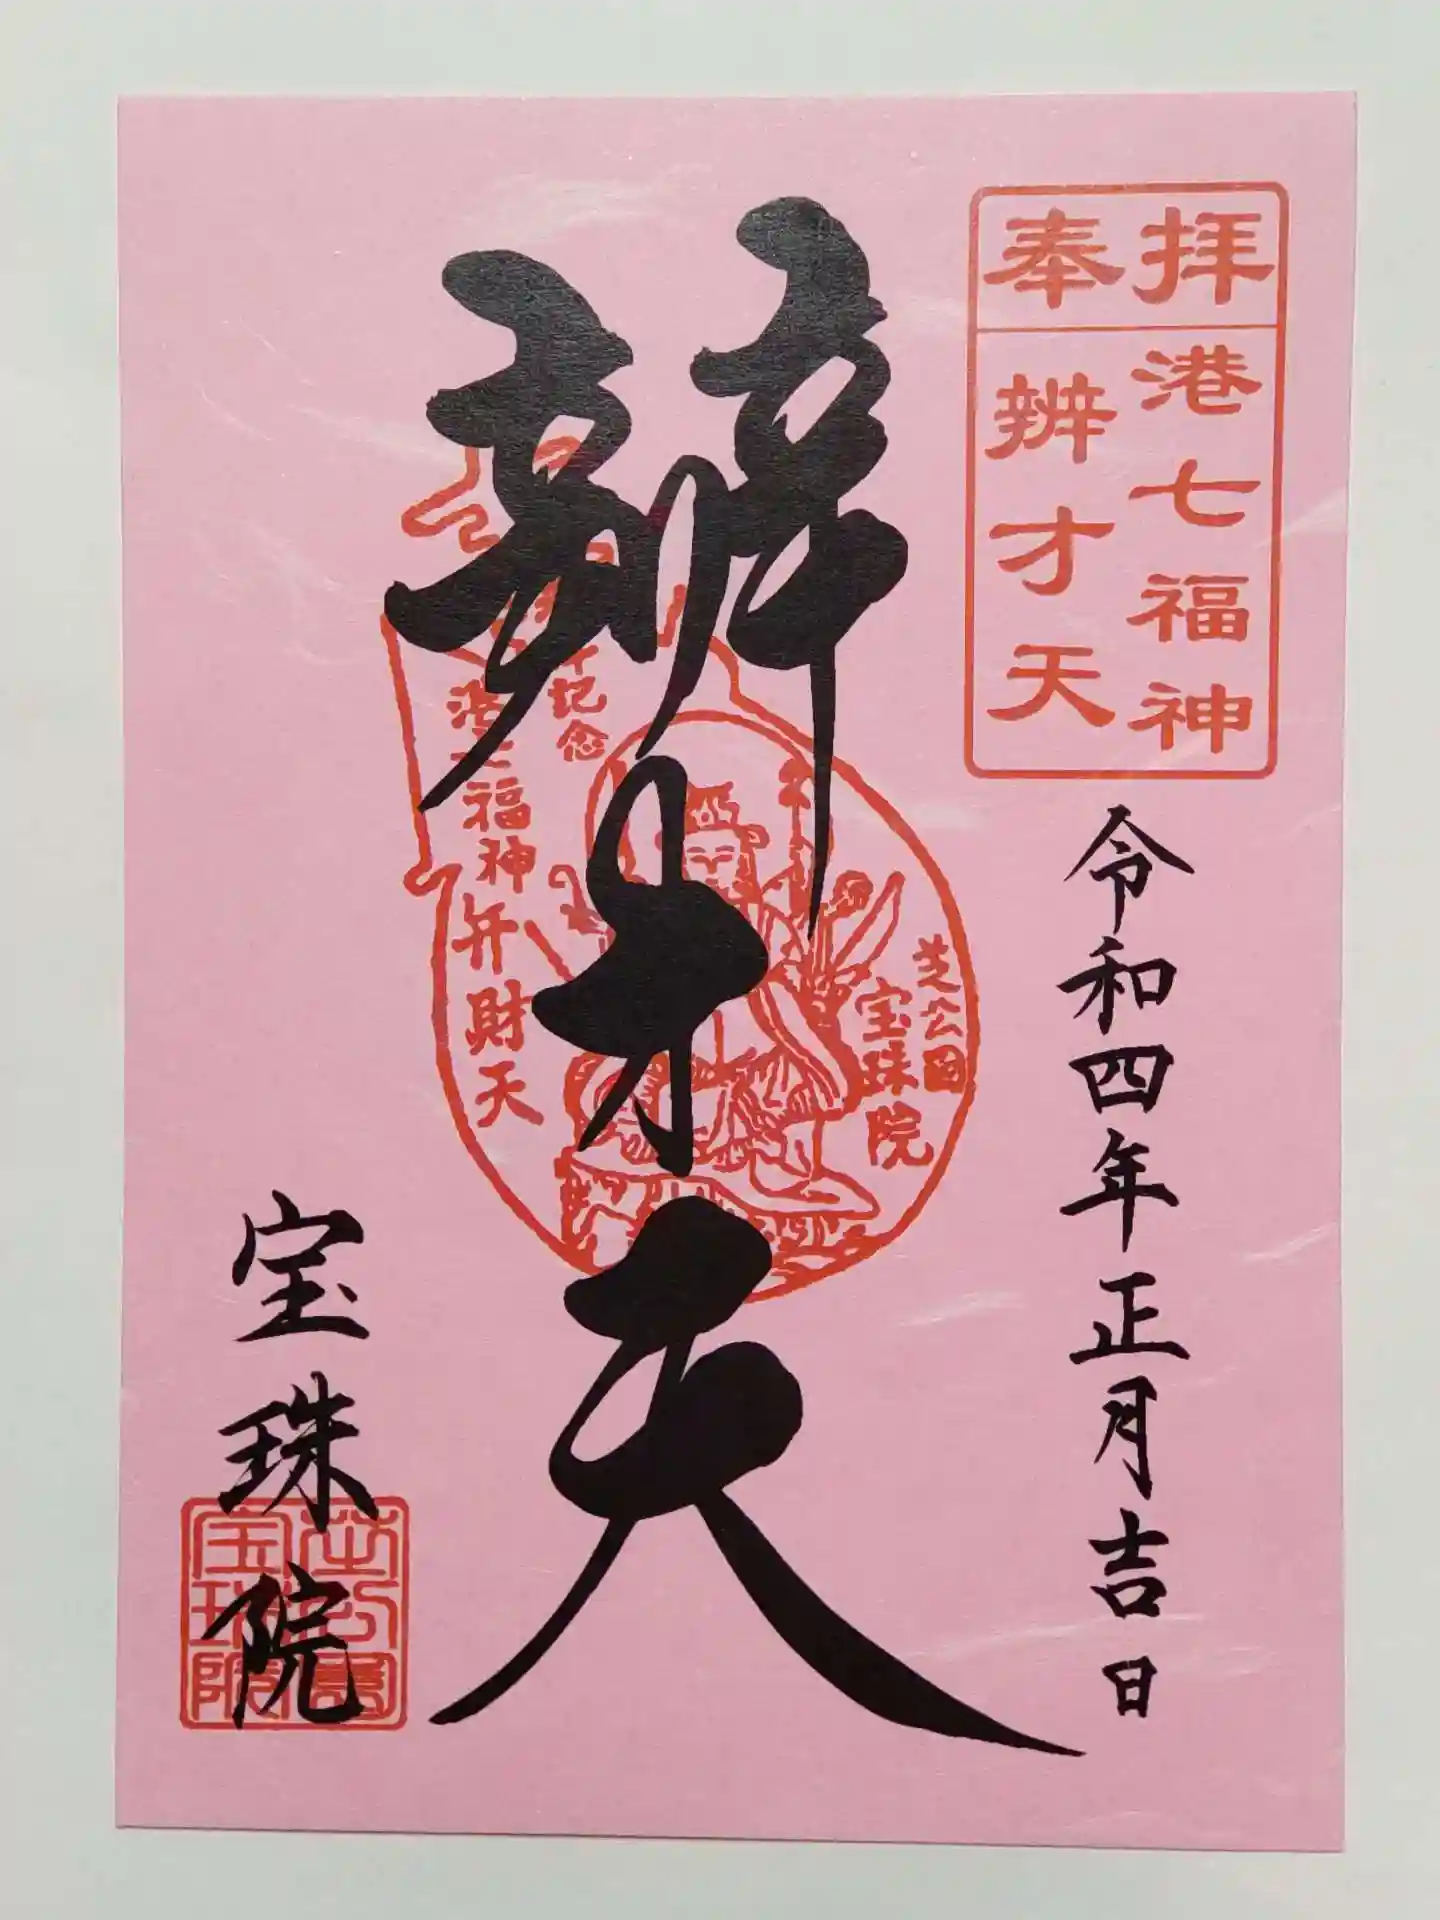 奉拝
港七福神
辨才天
令和四年正月吉日
辨才天
記念
港七福神
弁財天
芝公園
宝珠院
宝珠院
芝公園
宝珠院